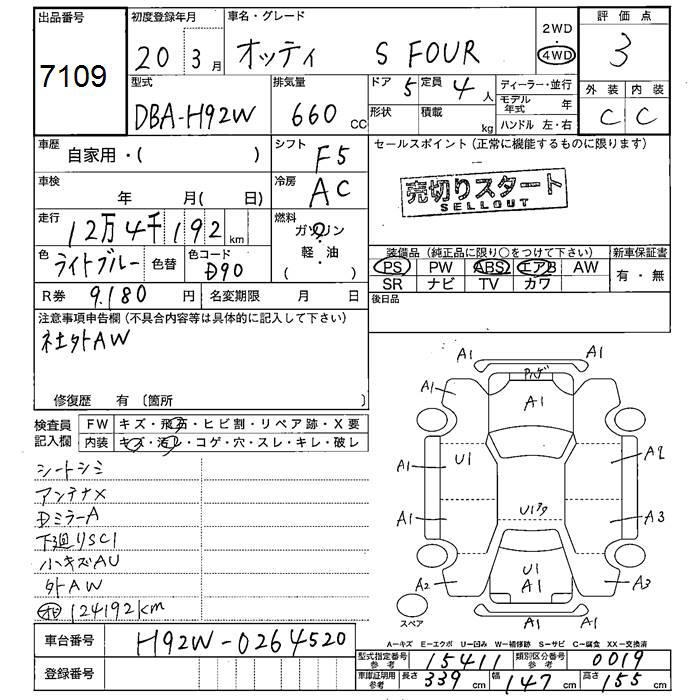 出品番号
7109
初度登録年月
20 3月
車名・グレード
オッティ S FOUR
2WD
・
4WD
評価点
3
外装 内装
C C
型式
DBA-H92W
排気量
660 CC
ドア 5
定員 4人
形状
積載 kg
ディーラー・並行
モデル年式 年
ハンドル 左・右
車歴
自家用・( )
シフト
F5
セールスポイント (正常に機能するものに限ります)
売切りスタート
SELLOUT
車検
年 月( 日)
冷房
AC
走行
12万4千192km
燃料
ガソリン
軽・油
( )
色 ライトブルー
色替
色コード
D90
装備品 (純正品に限り○をつけて下さい)
PS PW ABS エアB AW
SR ナビ TV カワ
新車保証書
有・無
R券 9,180円
名変期限 月 日
後日品
注意事項申告欄 (不具合内容等は具体的に記入して下さい)
社外AW
修復歴 有 〔箇所 〕
検査員記入欄
FW キズ・飛石・ヒビ割・リペア跡・X要
内装 キズ・汚レ・コゲ・穴・スレ・キレ・破レ
シートシミ
アンテナX
DミラーA
下廻りSC1
小キズAU
外AW
124192km
A1 A1
A1 A1 A1
U1
A1 A2
A1 A3
U1
A2 A1 A3
A1 A1
スペア
A-キズ E-エクボ U-凹み W-補修跡 S-サビ C-腐食 XX-交換済
車台番号
H92W-0264520
登録番号
型式指定番号参考 15411
類別区分番号参考 0019
車庫証明用参考
長さ 339cm
幅 147cm
高さ 155cm